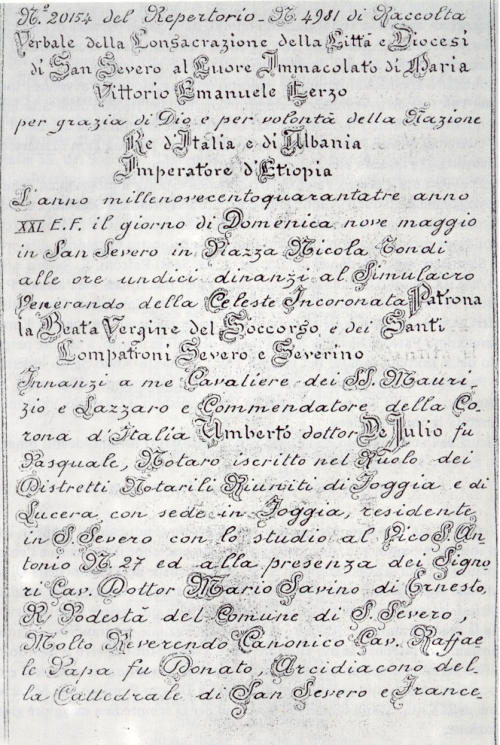 N.º 20154 del Repertorio - N. 4981 di Raccolta
Verbale della Consacrazione della Città e Diocesi
di San Severo al Cuore Immacolato di Maria
Vittorio Emanuele Terzo
per grazia di Dio e per volontà della Nazione
Re d'Italia e di Albania
Imperatore d'Etiopia
L'anno millenovecentoquarantatre anno
XXI E.F. il giorno di Domenica nove maggio
in San Severo in Piazza Nicola Tondi
alle ore undici dinanzi al Simulacro
Venerando della Celeste Incoronata Patrona
la Beata Vergine del Soccorso e dei Santi
Compatroni Severo e Severino
Innanzi a me Cavaliere dei SS. Mauri-
zio e Lazzaro e Commendatore della Co-
rona d'Italia Umberto dottor De Julio fu
Pasquale, Notaro iscritto nel Ruolo dei
Distretti Notarili Riuniti di Foggia e di
Lucera, con sede in Foggia, residente
in S. Severo con lo studio al Vico S. An-
tonio N. 27 ed alla presenza dei Signo-
ri Cav. Dottor Mario Savino di Ernesto,
R. Podestà del Comune di S. Severo,
Molto Reverendo Canonico Cav. Raffae-
le Papa fu Donato, Arcidiacono del-
la Cattedrale di San Severo e France-